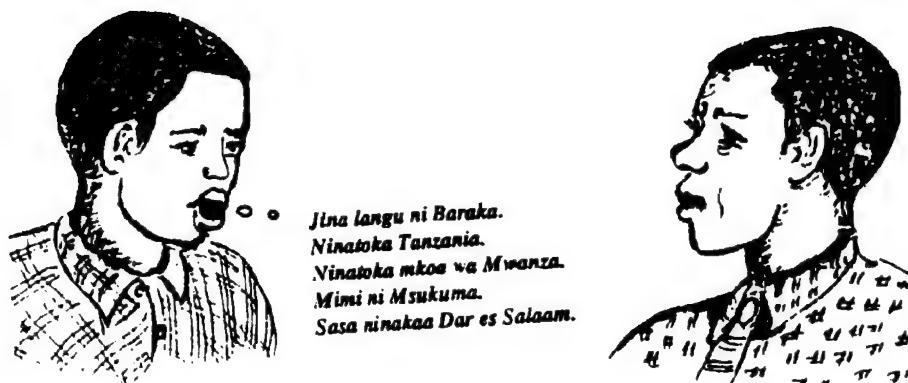 Jina langu ni Baraka.
Ninatoka Tanzania.
Ninatoka mkoa wa Mwanza.
Mimi ni Msukuma.
Sasa ninakaa Dar es Salaam.